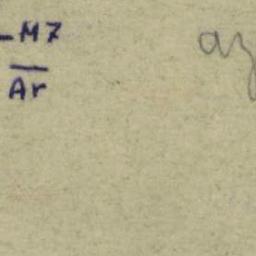 -MZ
Ar
az